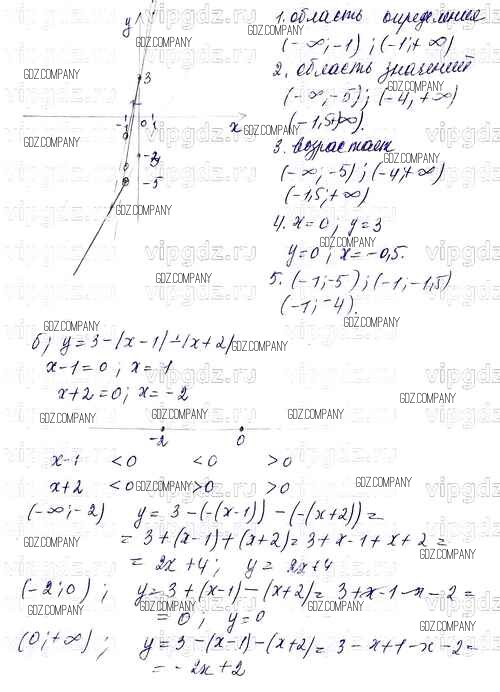 y
3
-1
0
1
x
-2
-5
1. область определения
(-∞; -1); (-1; +∞)
2. область значений
(-∞; -5); (-4, +∞)
(-1,5; +∞).
3. возрастает
(-∞; -5); (-4; +∞)
(-1,5; +∞)
4. x=0; y=3
y=0; x=-0,5.
5. (-1;-5); (-1; -1,5)
(-1; -4).
б) y=3-|x-1|-|x+2|
x-1=0; x=1
x+2=0; x=-2
-2 0
x-1 <0 <0 >0
x+2 <0 >0 >0
(-∞; -2) y = 3-(-(x-1)) -(-(x+2)) =
= 3+(x-1)+(x+2) = 3+x-1+x+2 =
= 2x+4; y = 2x+4
(-2; 0); y = 3+(x-1)-(x+2) = 3+x-1-x-2 =
= 0; y=0
(0; +∞); y = 3-(x-1)-(x+2) = 3-x+1-x-2 =
= -2x+2
GDZ.COMPANY
vipgdz.ru